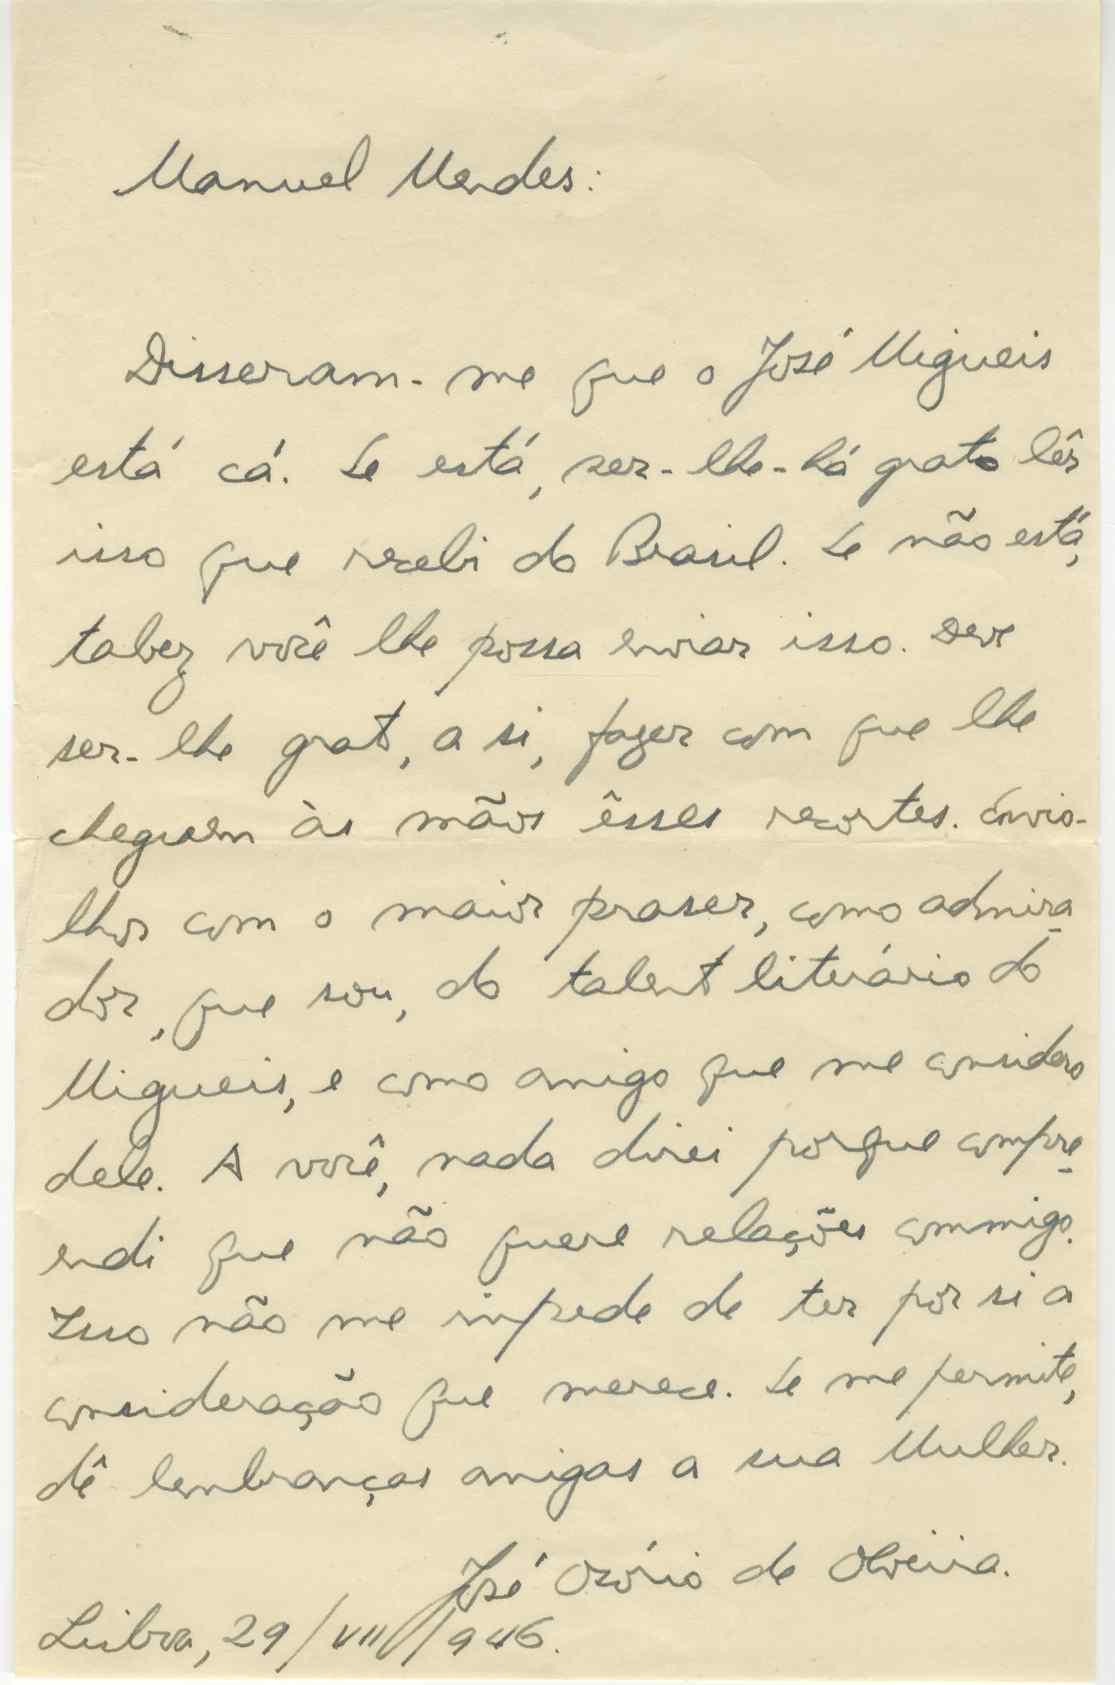 Manuel Mendes:
Disseram-me que o José Migueis
está cá. Se está, ser-lhe-há grato lêr
isso que recebi do Brasil. Se não está,
talvez você lhe possa enviar isso. Deve
ser-lhe grato, a si, fazer com que lhe
cheguem às mãos êsses recortes. Envio-
lhos com o maior praser, como admira-
dor, que sou, do talento literário do
Migueis, e como amigo que me considero
dele. A você, nada direi porque compre-
endi que não quere relações commigo.
Isso não me impede de ter por si a
consideração que merece. Se me permite,
dê lembranças amigas a sua Mulher.
José Osório de Oliveira.
Lisboa, 29/VII/946.